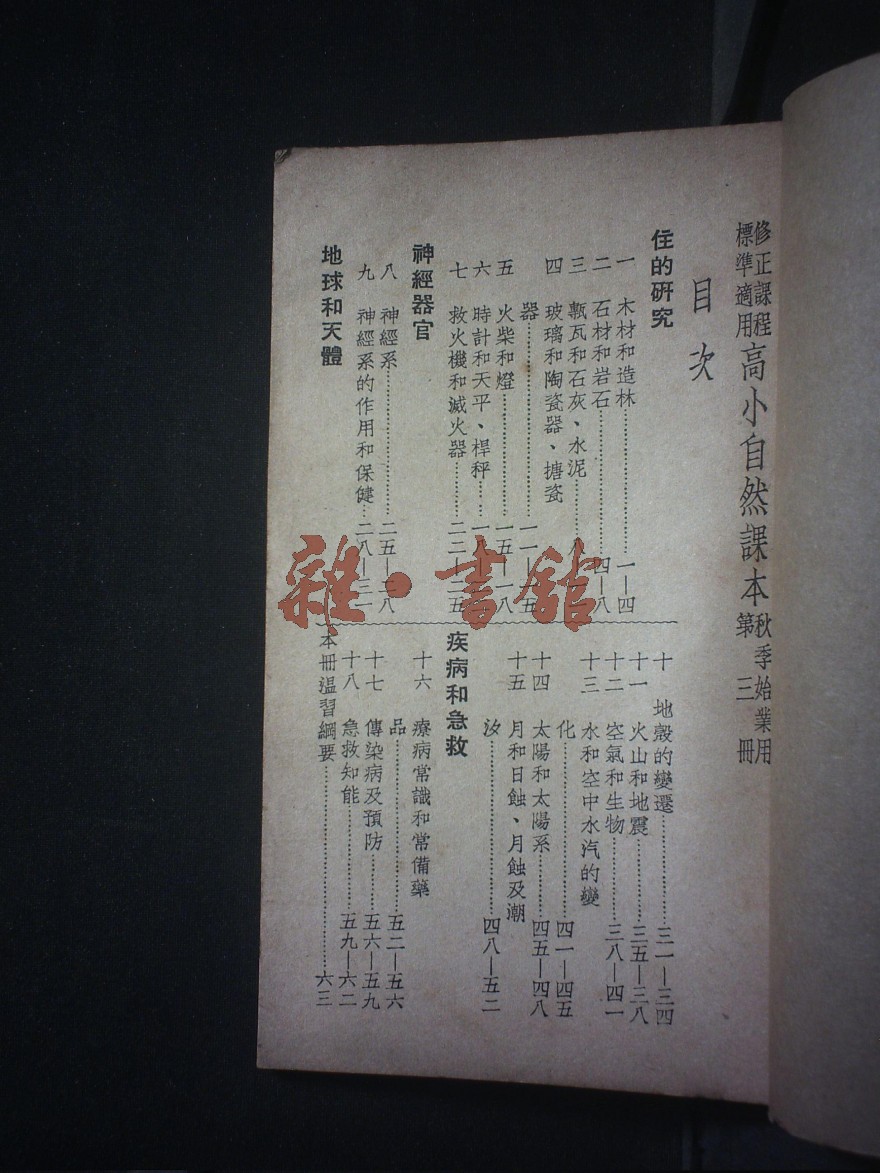 修正課程標準適用 高小自然課本 秋季始業用 第三冊
目次
住的研究
一 木材和造林……一—四
二 石材和岩石……四—八
三 甎瓦和石灰、水泥……八—
四 玻璃和陶瓷器、搪瓷
器……一一—一五
五 火柴和燈……一五—一八
六 時計和天平、桿秤……一八—
七 救火機和滅火器……二三—二五
神經器官
八 神經系……二五—二八
九 神經系的作用和保健……二八—三一
地球和天體
十 地殼的變遷……三一—三四
十一 火山和地震……三五—三八
十二 空氣和生物……三八—四一
十三 水和空中水汽的變
化……四一—四五
十四 太陽和太陽系……四五—四八
十五 月和日蝕、月蝕及潮
汐……四八—五二
疾病和急救
十六 療病常識和常備藥
品……五二—五六
十七 傳染病及預防……五六—五九
十八 急救知能……五九—六二
本冊溫習綱要……六三
雜·書館